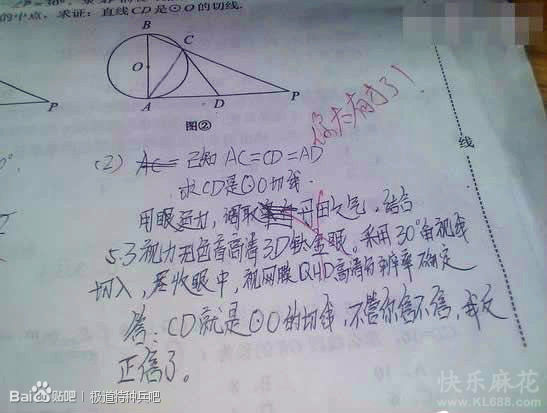 的中点，求证：直线CD是⊙O的切线.
B
C
O
A
D
P
P
图②
你太有才了!
线
(2) 已知 AC=CD=AD
求CD是⊙O切线.
用眼运力，调取丹田之气，结合
5.3视力无色盲高清3D钛金眼。采用30°角视线
切入，尽收眼中，视网膜QHD高清分辨率确定
答：CD就是⊙O的切线，不管你信不信，我反
正信了。
Bai du 贴吧 | 极道特种兵吧
快乐麻花
www.KL688.com